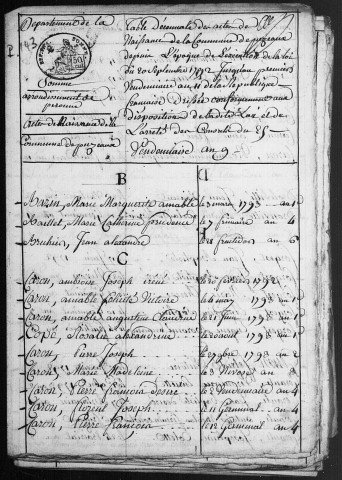 Département de la
Somme
arrondissement de
peronne
Actes de Naissance de la
Commune de puzeaux
Table Decennale des actes de
Naissance de la Commune de puzeaux
depuis L'époque de L'execution de la loi
du 20 Septembre 1792 Jusqu'au premier
Vendemiaire an 11 de la Republique
francaise Dressée conformement aux
disposition de la dite Loi et de
L'arreté des Consuls du 25
Vendemiaire an 9
B
Bazin, Marie Marguerite amable le 3 mars 1793 an 1er
Baillet, Marie Catherine prudence le 7 frimaire an 4
Bruhier, Jean alexandre le 21 fructidor an 6
C
Caron, ambroise Joseph irené
Caron, amable Victoire le 6 may 1793 an 1er
Caron, amable augustine Clementine le 21 Juin 1793 an 1er
Copé, Rosalie alexandrine le 20 aout 1793 an 1er
Caron, Pierre Joseph 1793 an 2
Caron, Marie Madeleine le 3 Nivose an 3
Caron, Pierre francois Desiré le 2 Vendemiaire an 4
Caron, florent Joseph le 11 Germinal an 4
Caron, Pierre francois le 12 Germinal an 4